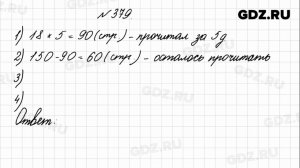 GDZ.RU
№379
1) 18 × 5 = 90 (стр) - прочитал за 5д
2) 150 - 90 = 60 (стр) - осталось прочитать
3)
4)
Ответ: